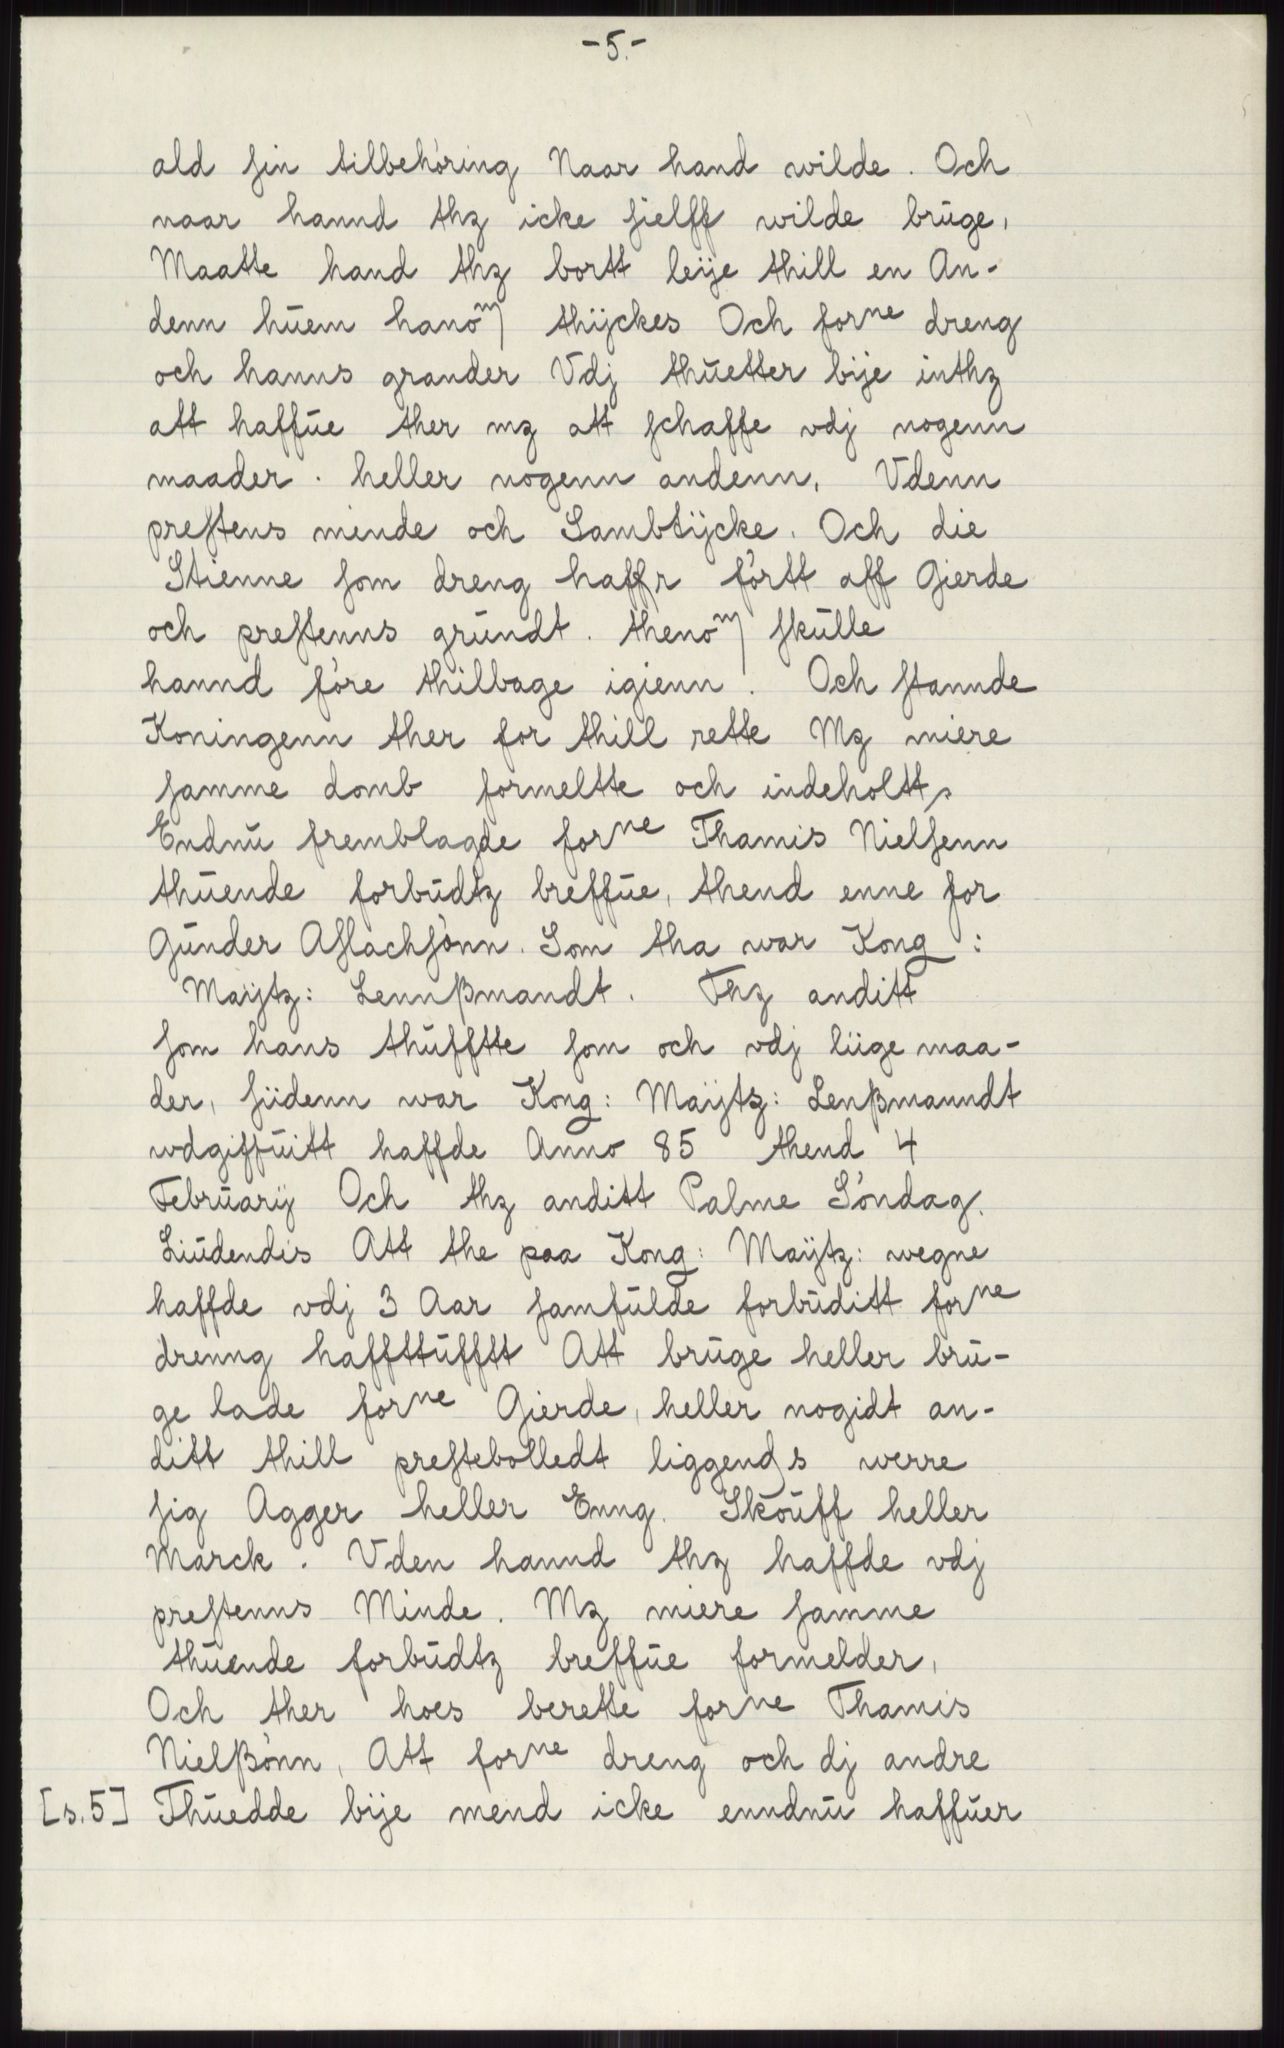 -5.-
ald sin tilbehöring Naar hand wilde. Och
naar hannd thz icke sielff wilde brŭge,
Maatte hand thz bortt leÿe thill en An-
denn hŭem hanom thÿckes Och forne dreng
och hanns grander Vdj thŭetter bÿe inthz
att haffŭe ther mz att schaffe vdj nogenn
maader. heller nogenn andenn, Vdenn
prestens minde och Sambtÿcke. Och die
Stienne som dreng haffr förtt aff Gierde
och prestenns grŭndt. thenom skŭlle
hannd före thilbage igienn. Och stannde
Koningenn ther for thill rette Mz miere
samme domb formeltte och indeholtt,
Endnŭ fremblagde forne Thamis Nielsenn
thŭende forbŭdtz breffŭe, thend enne for
Gŭnder Aslachsönn. Som tha war Kong:
Maÿtz: Lennßmandt. Thz anditt
som hans thŭfftte som och vdj liige maa-
der, siidenn war Kong: Maÿtz: Lenßmanndt
wdgiffŭitt haffde Anno 85 thend 4
Febrŭarÿ Och thz anditt Palme Söndag.
Liŭdendis Att the paa Kong: Maÿtz: wegne
haffde vdj 3 Aar samfŭlde forbŭditt forne
drenng haffttŭfftt Att brŭge heller brŭ-
ge lade forne Gierde, heller nogidt an-
ditt thill prestebolledt liggends werre
sig Agger heller Enng. Skoŭff heller
Marck. Vden hannd thz haffde vdj
prestenns Minde. Mz miere samme
thŭende forbŭdtz breffŭe formelder,
Och ther hoes berette forne Thamis
Nielßönn, Att forne dreng och dj andre
[s.5] Thŭedde bÿe mend icke enndnŭ haffŭer